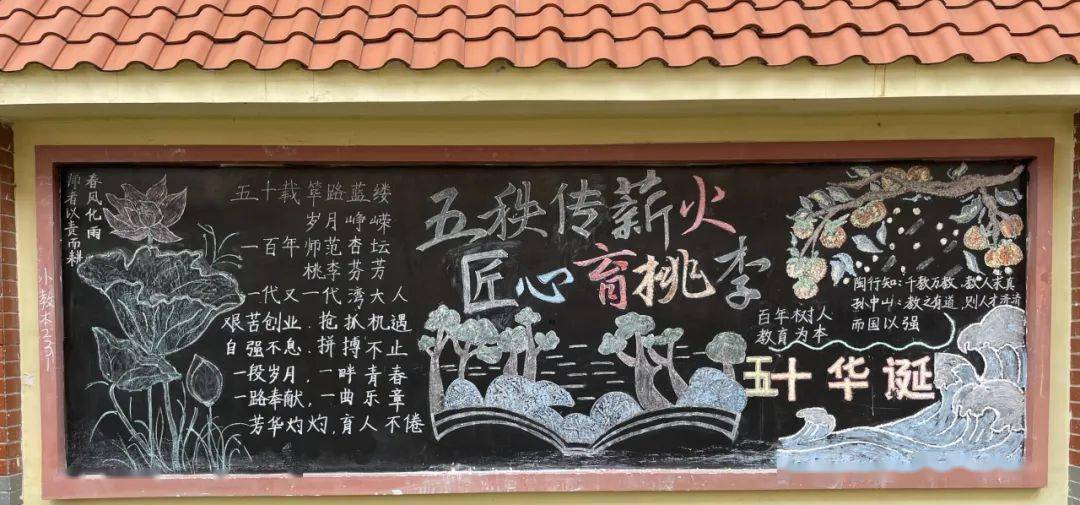 小教本2231
春风化雨
师者以责而耕
五十载筚路蓝缕
岁月峥嵘
一百年师范杏坛
桃李芬芳
一代又一代湾大人
艰苦创业.抢抓机遇
自强不息.拼搏不止
一段岁月,一畔青春
一路奉献,一曲乐章
芳华灼灼,育人不倦
五秩传薪火
匠心育桃李
陶行知:千教万教,教人求真
孙中山:教之有道,则人才济济
而国以强
百年树人
教育为本
五十华诞